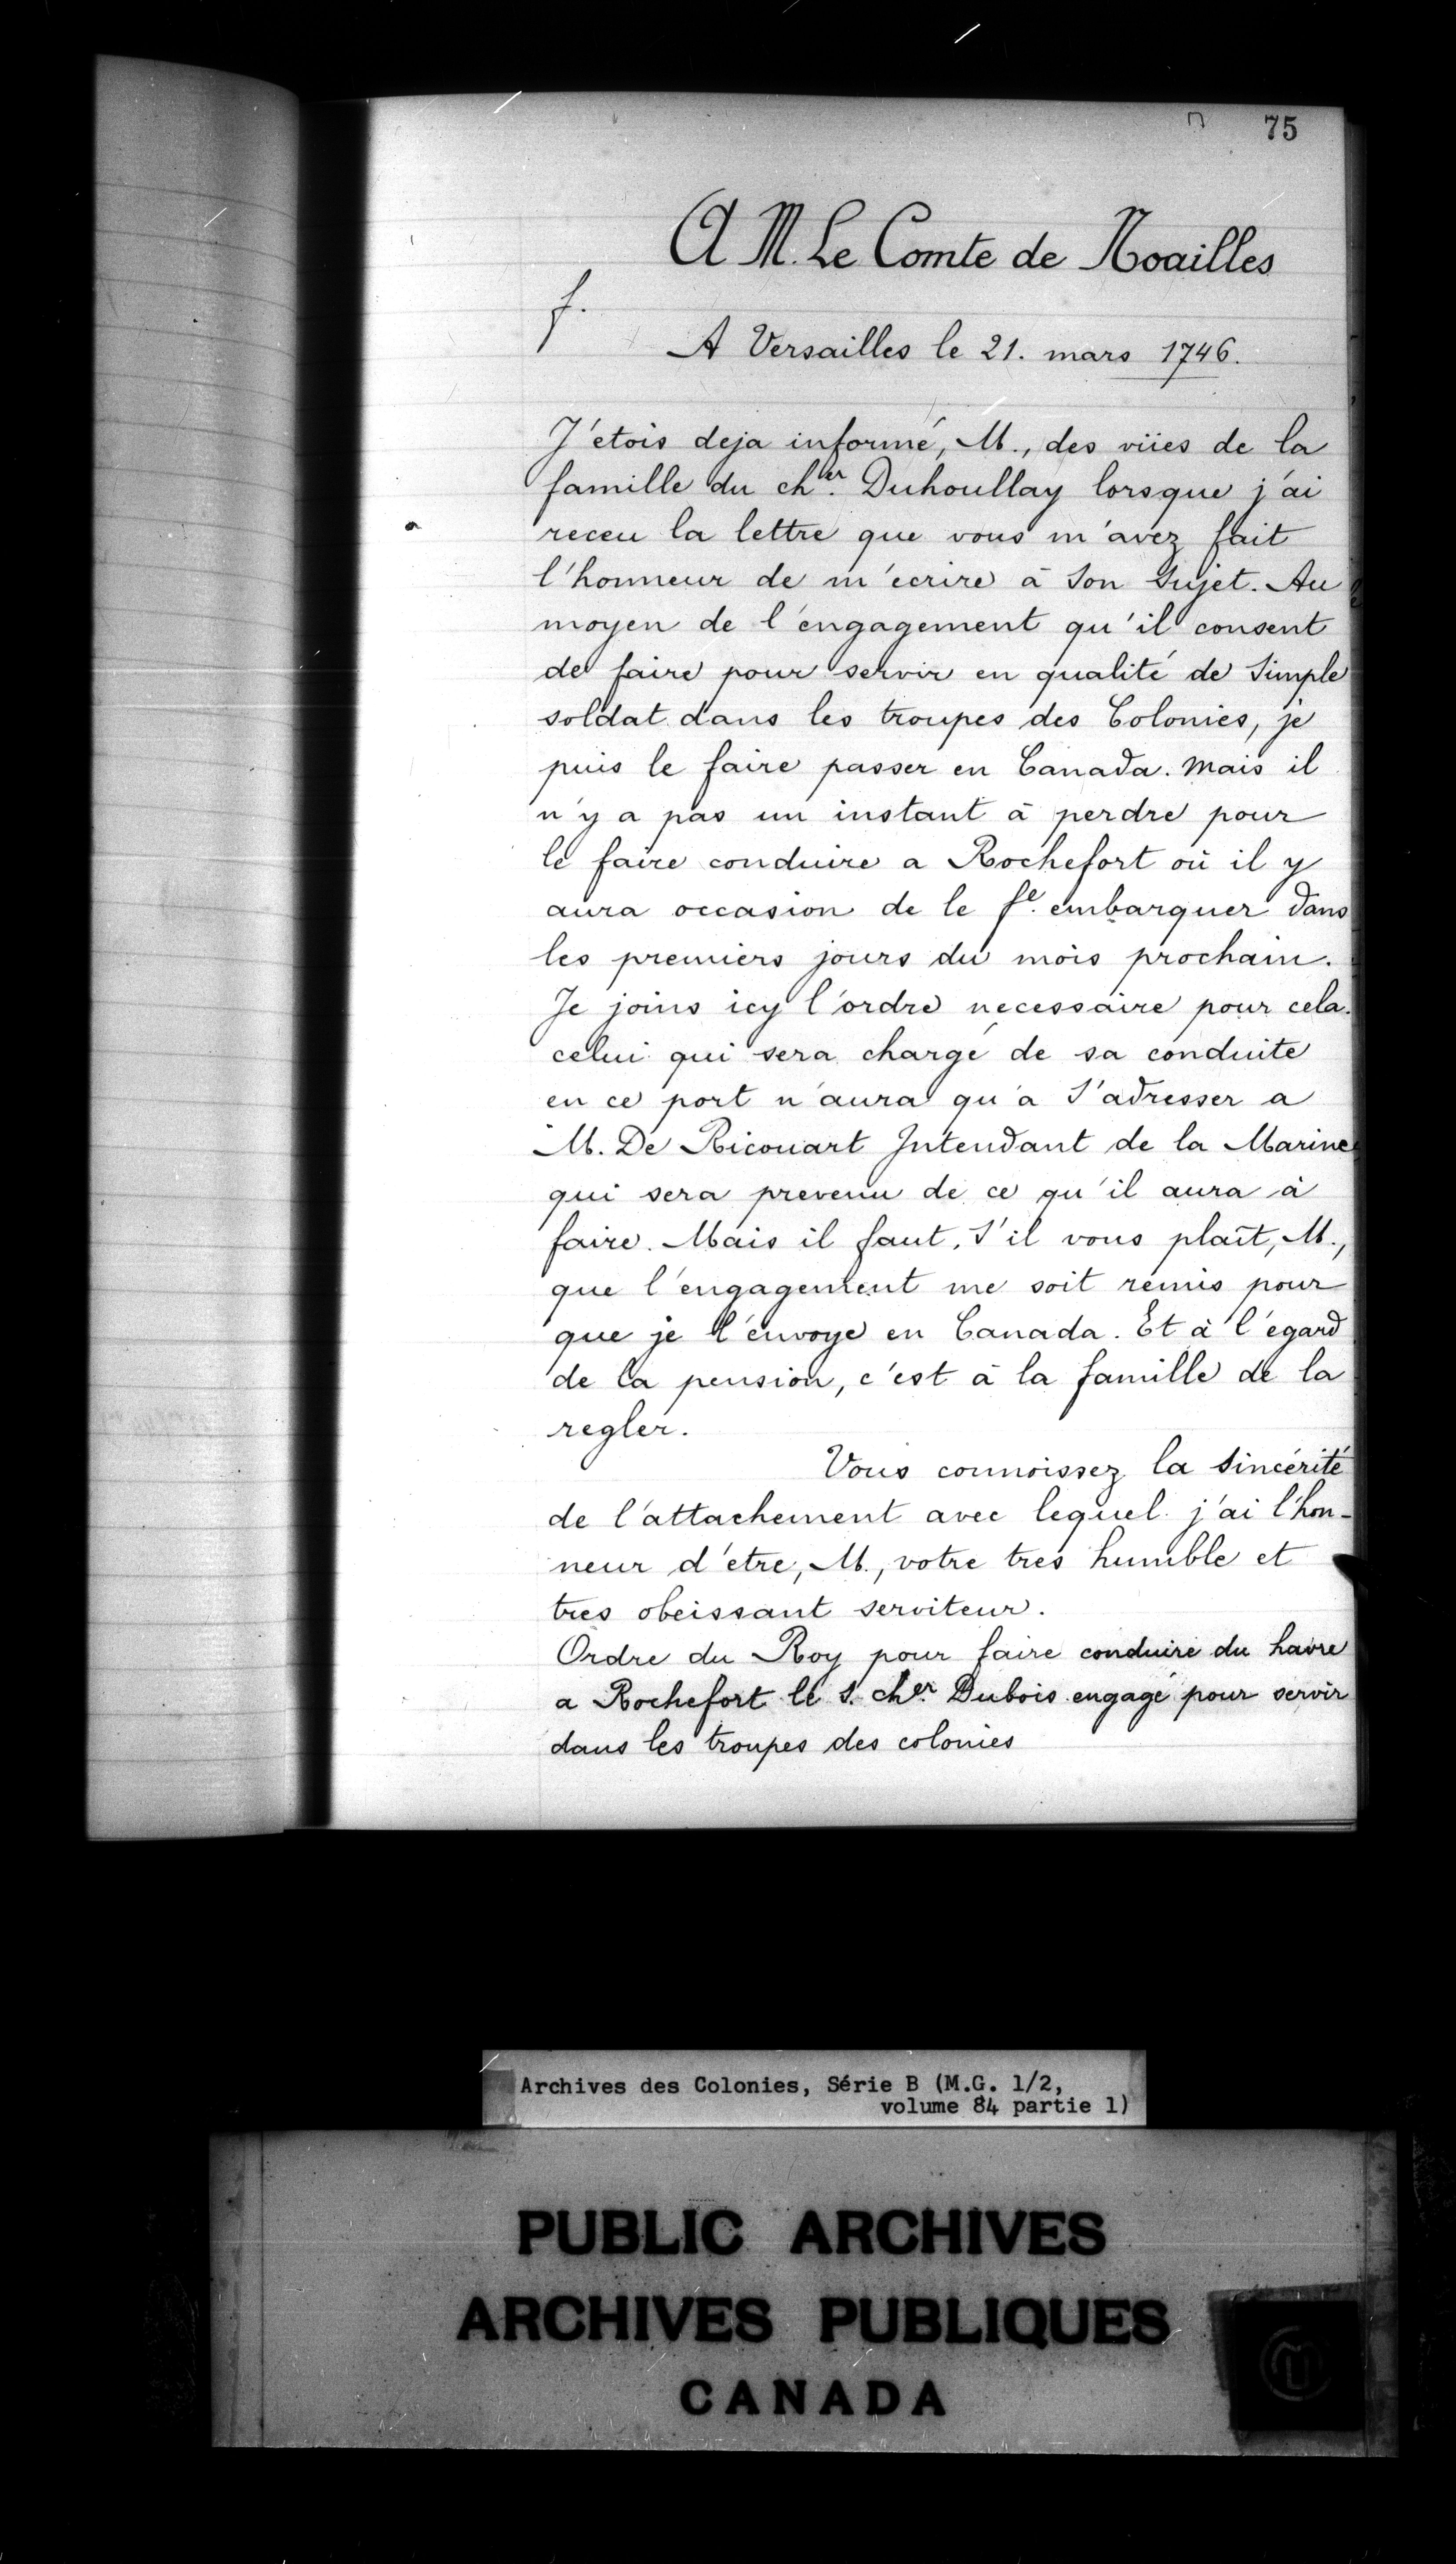 75
A M. Le Comte de Noailles
f.
A Versailles le 21. mars 1746.
J'etois deja informé, M., des vües de la
famille du ch.er Duhoullay lorsque j'ai
receu la lettre que vous m'avez fait
l'honneur de m'ecrire à Son Sujet. Au
moyen de l'engagement qu'il consent
de faire pour servir en qualité de Simple
soldat dans les troupes des Colonies, je
puis le faire passer en Canada. Mais il
n'y a pas un instant à perdre pour
le faire conduire a Rochefort où il y
aura occasion de le f.e embarquer dans
les premiers jours du mois prochain.
Je joins icy l'ordre necessaire pour cela.
celui qui sera chargé de sa conduite
en ce port n'aura qu'a S'adresser a
M. De Ricouart Intendant de la Marine
qui sera prevenu de ce qu'il aura à
faire. Mais il faut, S'il vous plaît, M.,
que l'engagement me soit remis pour
que je l'envoye en Canada. Et à l'égard
de la pension, c'est à la famille de la
regler.
Vous connoissez la Sincérité
de l'attachement avec lequel j'ai l'hon-
neur d'etre, M., votre tres humble et
tres obeissant serviteur.
Ordre du Roy pour faire conduire du havre
a Rochefort le S. ch.er Dubois engagé pour servir
dans les troupes des colonies
Archives des Colonies, Série B (M.G. 1/2,
volume 84 partie 1)
PUBLIC ARCHIVES
ARCHIVES PUBLIQUES
CANADA